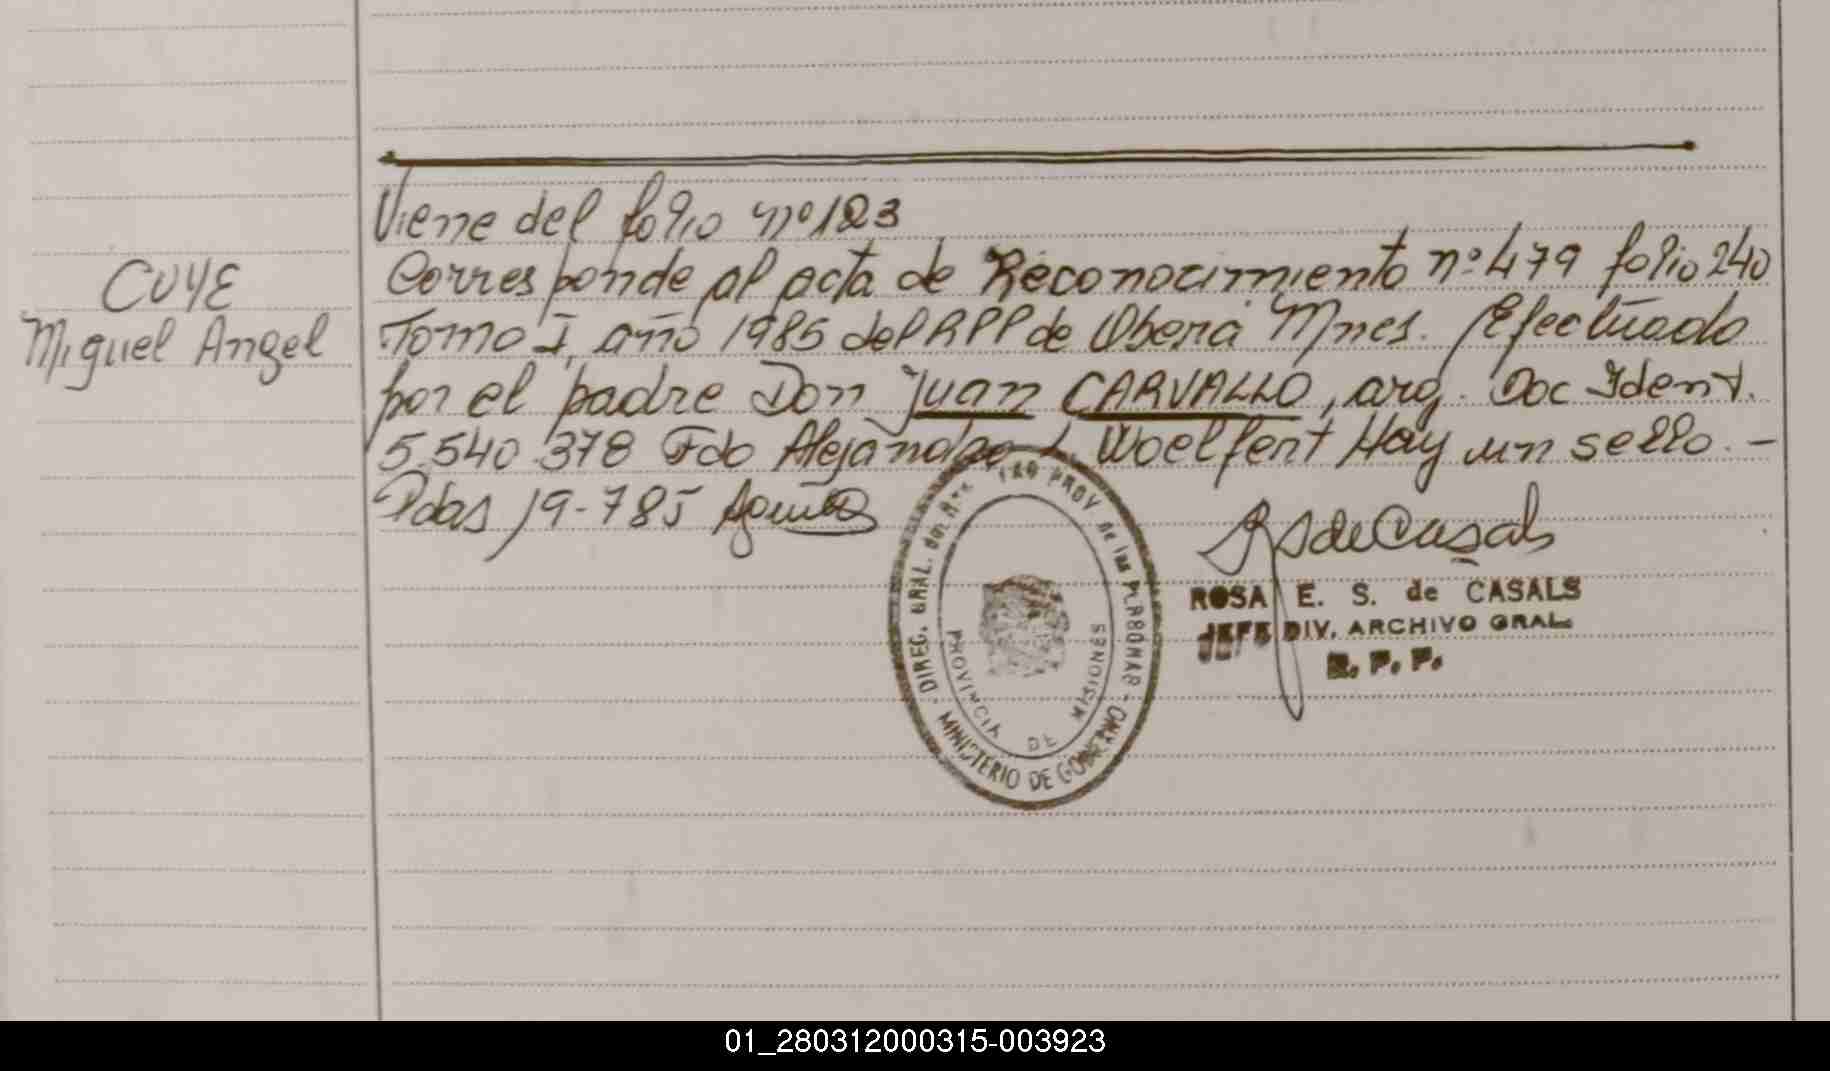 Viene del folio nº 123
CUYE
Miguel Angel
Corresponde al acta de Reconocimiento nº 479 folio 240
Tomo I, año 1985 del RPP de Oberá Mnes. Efectuado
por el padre Don Juan CARVALLO, arg. Doc Ident.
5.540.378 Fdo Alejandro L. Woelfert Hay un sello. -
Pdas 19-785
ROSA E. S. de CASALS
JEFE DIV. ARCHIVO GRAL.
R. P. P.
DIREC. GRAL. del PROV de las PERSONAS - MINISTERIO DE GOBIERNO
PROVINCIA DE MISIONES
01_280312000315-003923